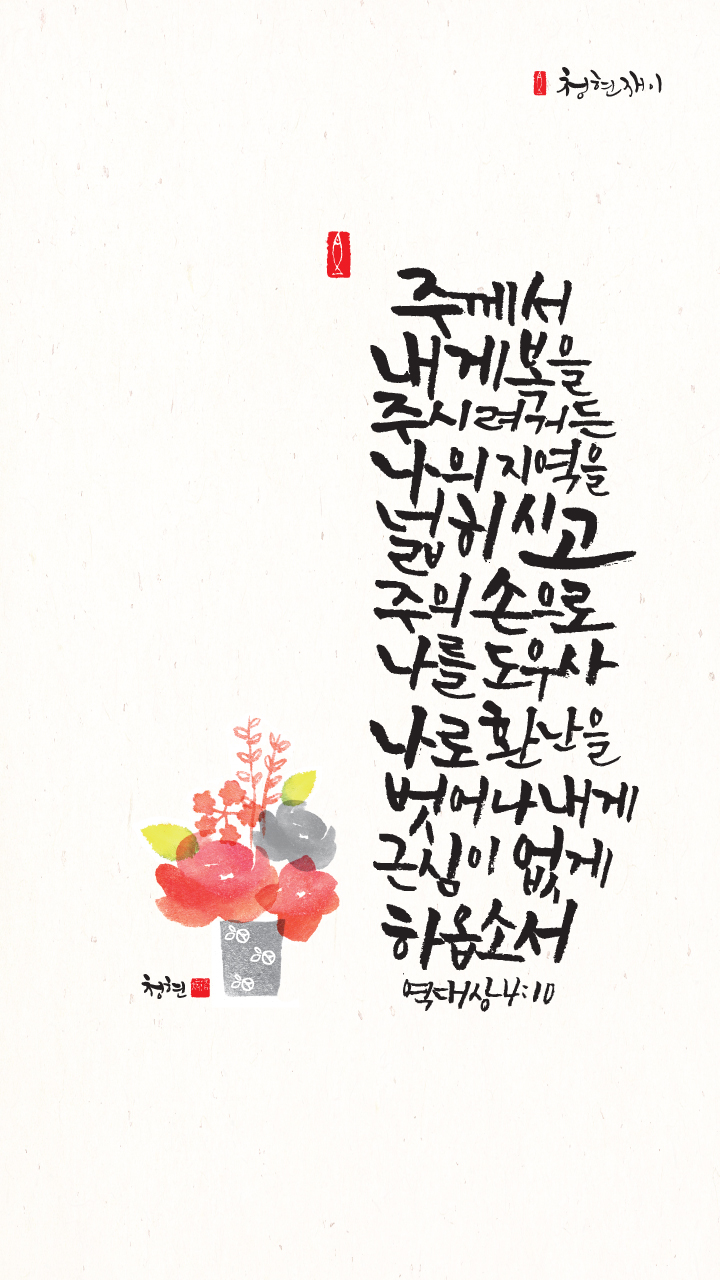 청현재이
주께서
내게 복을
주시려거든
나의 지역을
넓히시고
주의 손으로
나를 도우사
나로 환난을
벗어나 내게
근심이 없게
하옵소서
역대상 4:10
청현